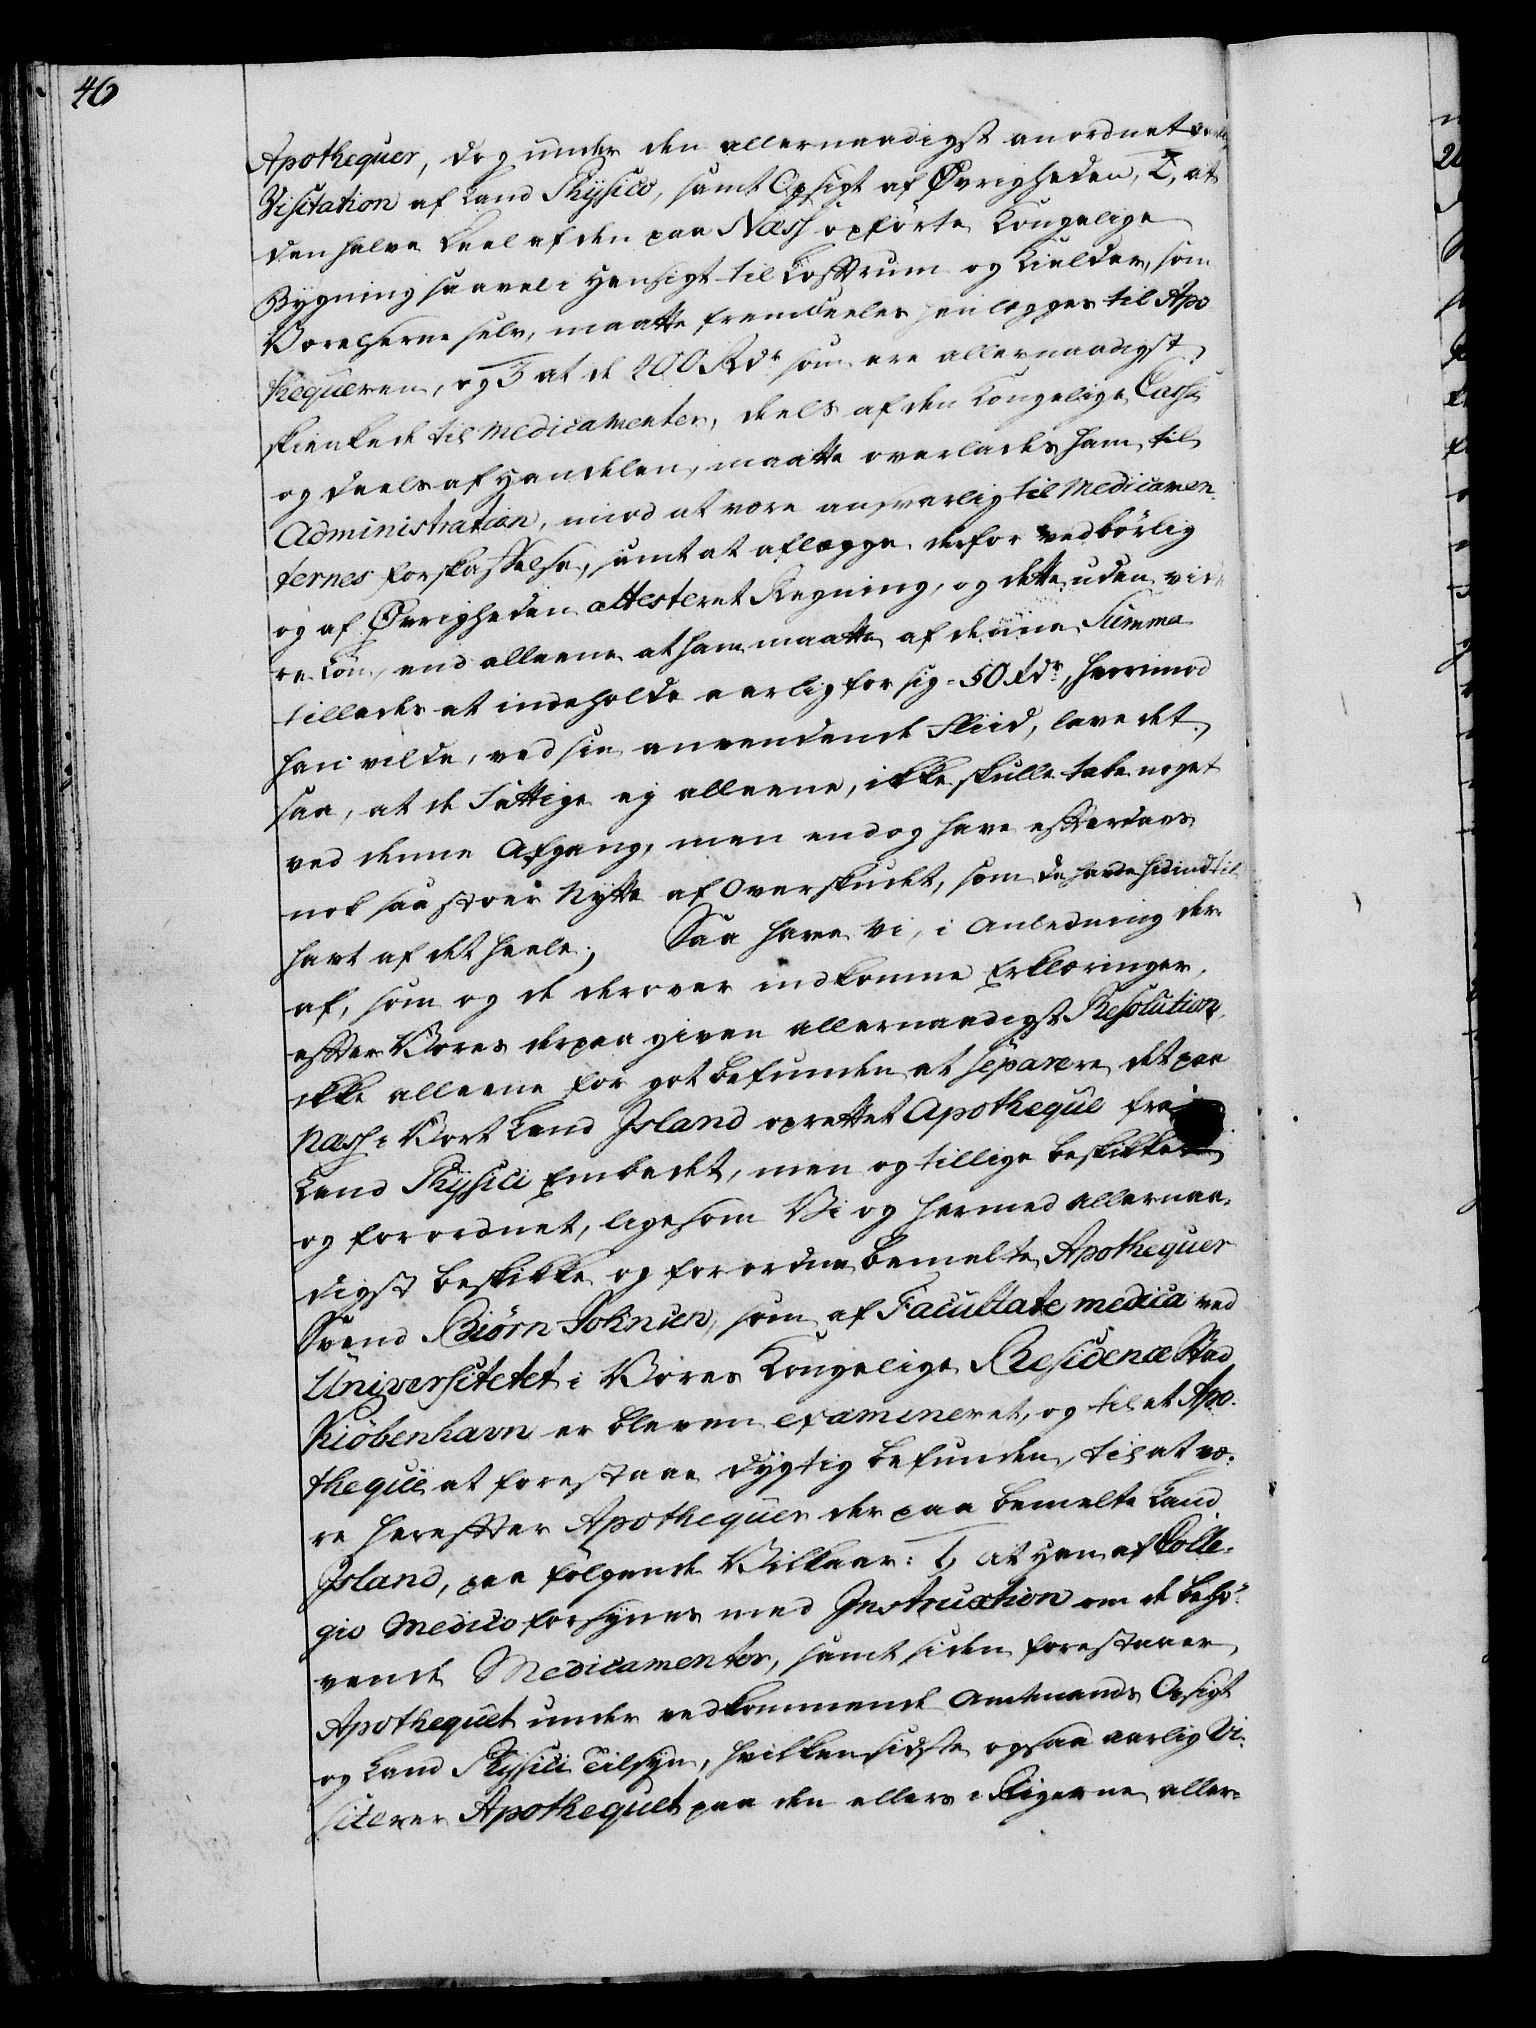 46
Apothequer, dog under den allernaadigst anordnet
Visitation af Land Physico, samt Opsigt af Øvrigheden, 2, at
den halve Deel af den paa Næss opførte Kongelige
Bygning saavel i Hensigt til Losstrum og Kielder, som
Værelserne selv, maatte fremdeeles henlægges til Apo-
thequeren, og 3 at de 400 Rdr som ere allernaadigst
skienkede til Medicamenter, deels af den Kongelige Casse
og deels af Handelen, maatte overlades ham til
Administration, mod at være ansvarlig til Medicamen-
ternes Forskaffelse, samt at aflægge derfor vedbørlig
og af Øvrigheden attesteret Regning, og dette uden vide-
re Løn, end alleene at ham maatte af denne Summa
tillades at indeholde aarlig for sig 50 Rdr, hvorimod
han vilde, ved sin anvendende Fliid, lave det
saa, at de Fattige ej alleene, ikke skulle tabe noget
ved denne Afgang, men endog have efterdags
nok saa stoer Nytte af Overskudet, som de havde hidindtil
havt af det heele; Saa have Vi, i Anledning der-
af, som og de derover indkomne Erklæringer,
efter Vores derpaa given allernaadigst Resolution,
ikke alleene for got befunden at separere det paa
Næss i Vort Land Island oprettet Apotheque fra
Land Physici Embedet, men og tillige beskikket
og forordnet, ligesom Vi og hermed allernaa-
digst beskikke og forordne bemelte Apothequer
Svend Biørn Johnsen, som af Facultate medica ved
Universitetet i Vores Kongelige Residence Stad
Kiøbenhavn er bleven examineret, og til et Apo-
theque at forestaae dygtig befunden, til at væ-
re herefter Apothequer der paa bemelte Land
Island, paa følgende Vilkaar: 1, At Han af Colle-
gio Medico forsynes med Instruction om de behø-
vende Medicamenter, samt siden forestaaer
Apothequet under vedkommende Amtmands Opsigt
og Land Physici Tilsyn, hvilken sidste ogsaa aarlig Vi-
siterer Apothequet paa den ellers i Rigerne aller-